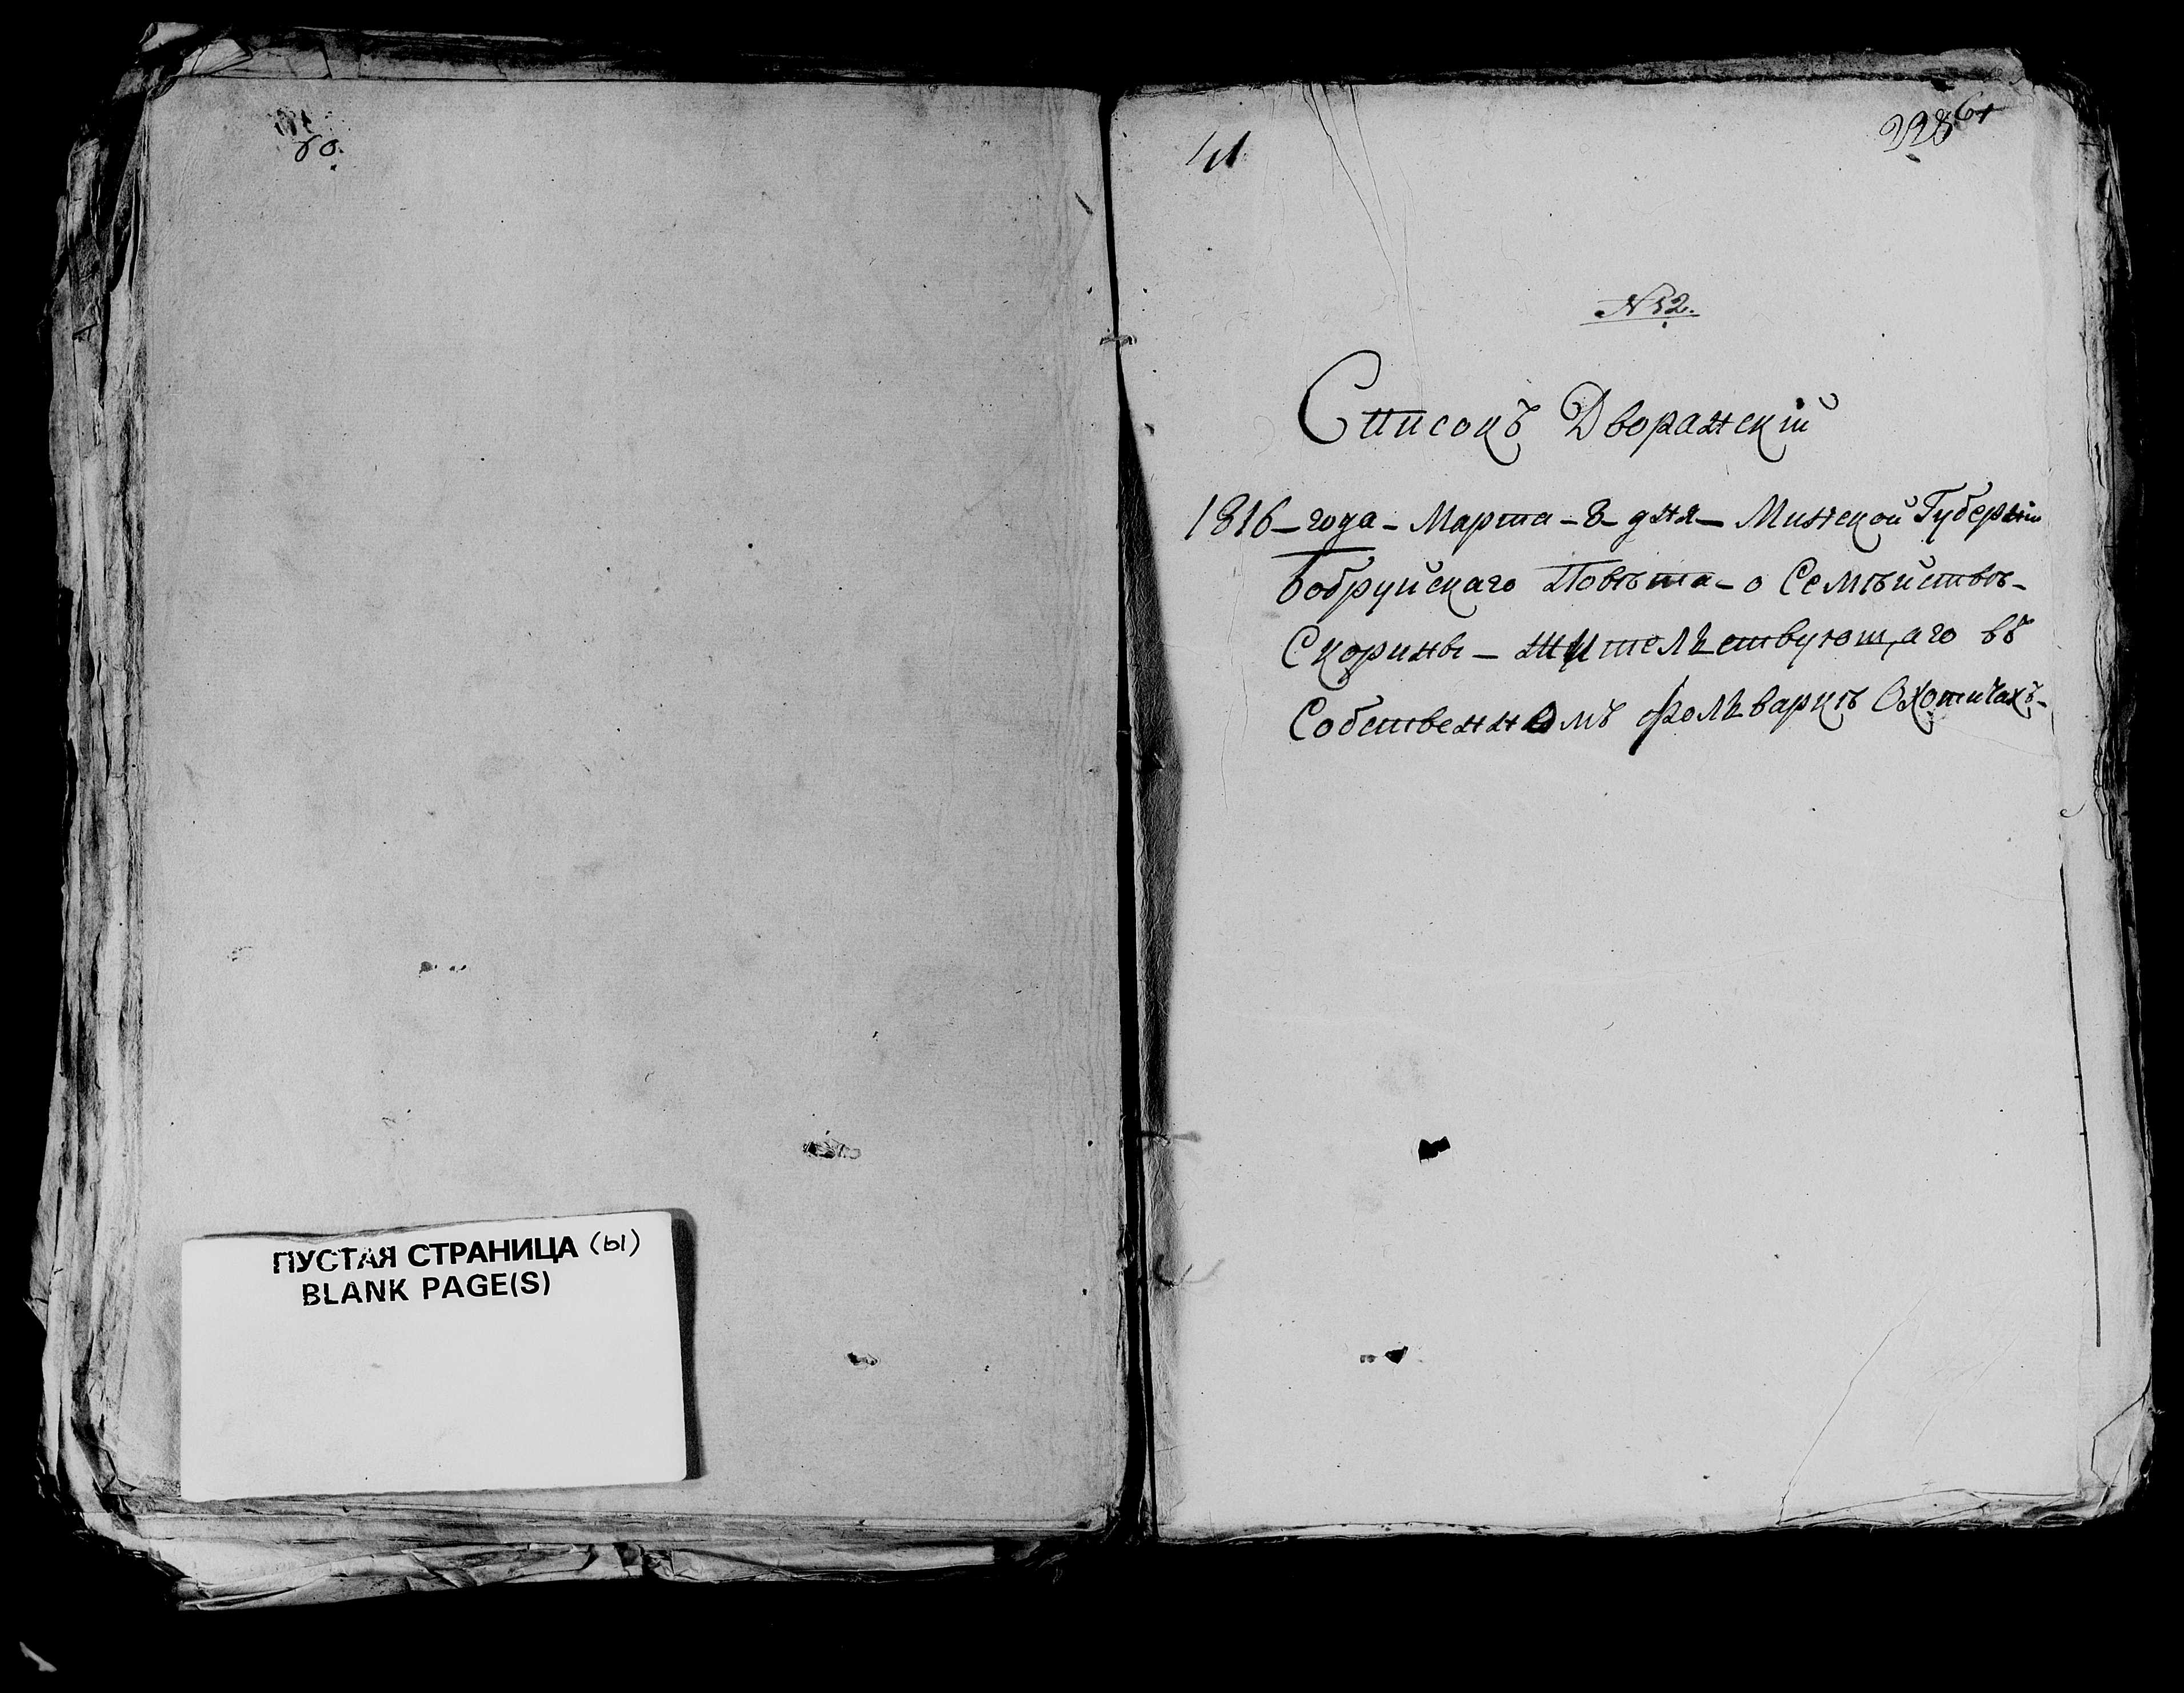 60.
ПУСТАЯ СТРАНИЦА (ы)
BLANK PAGE(S)
41
228 61
N 52.
Списокъ Дворянскій
1816 – года – Марта – 8 – дня – Минской Губерніи
Бобруйскаго Повѣта – о Семѣйствѣ –
Скорины – жительствующаго въ
Собственномъ фольваркѣ Охотичахъ –